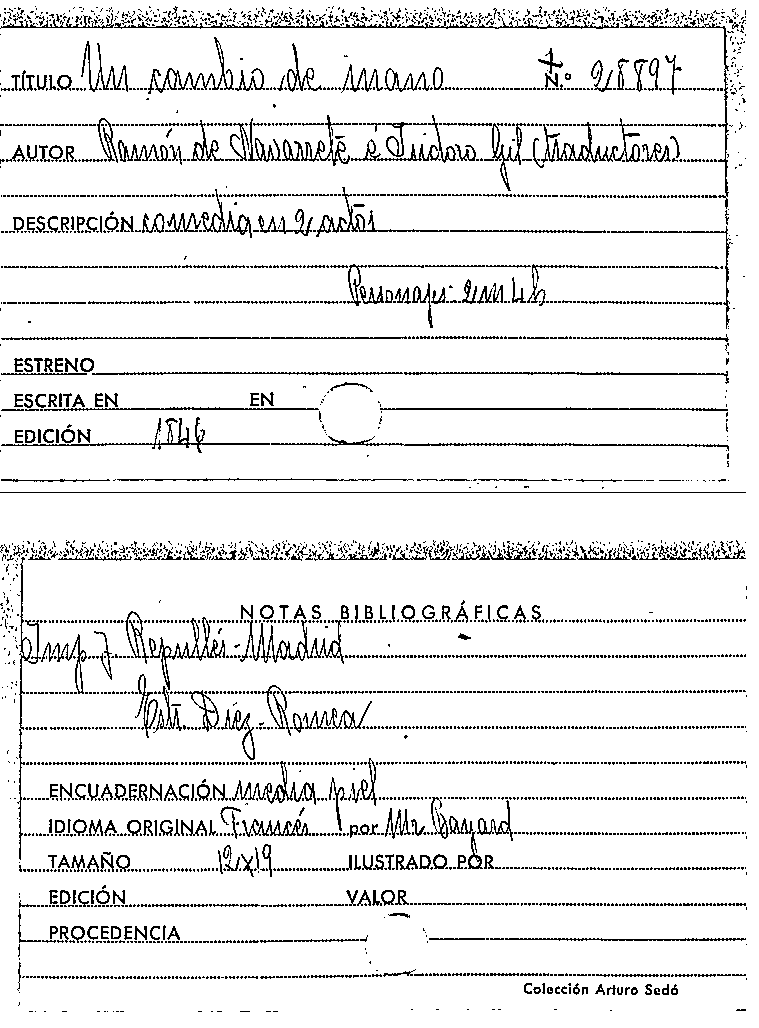 TÍTULO Un cambio de mano N.º 28897
AUTOR Ramón de Navarrete é Isidoro Gil (traductores)
DESCRIPCIÓN comedia en 2 actos
Personajes 2 m 4 h
ESTRENO
ESCRITA EN EN
EDICIÓN 1846
NOTAS BIBLIOGRÁFICAS
Imp J. Repullés-Madrid
Díez-Romea
ENCUADERNACIÓN media piel
IDIOMA ORIGINAL Francés por Mr Bayard
TAMAÑO 12x19 ILUSTRADO POR
EDICIÓN VALOR
PROCEDENCIA
Colección Arturo Sedó